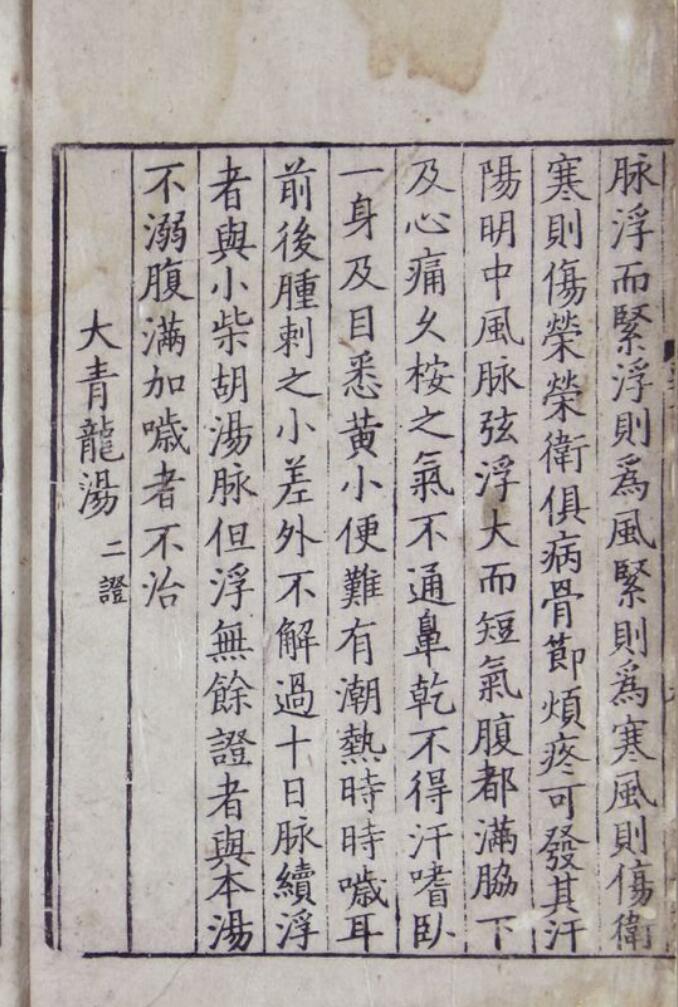 脉浮而緊浮則爲風緊則爲寒風則傷衛
寒則傷榮榮衛俱病骨節煩疼可發其汗
陽明中風脉弦浮大而短氣腹都滿脇下
及心痛久桉之氣不通鼻乾不得汗嗜臥
一身及目悉黃小便難有潮熱時時噦耳
前後腫刺之小差外不解過十日脉續浮
者與小柴胡湯脉但浮無餘證者與本湯
不溺腹滿加噦者不治
大青龍湯 二證